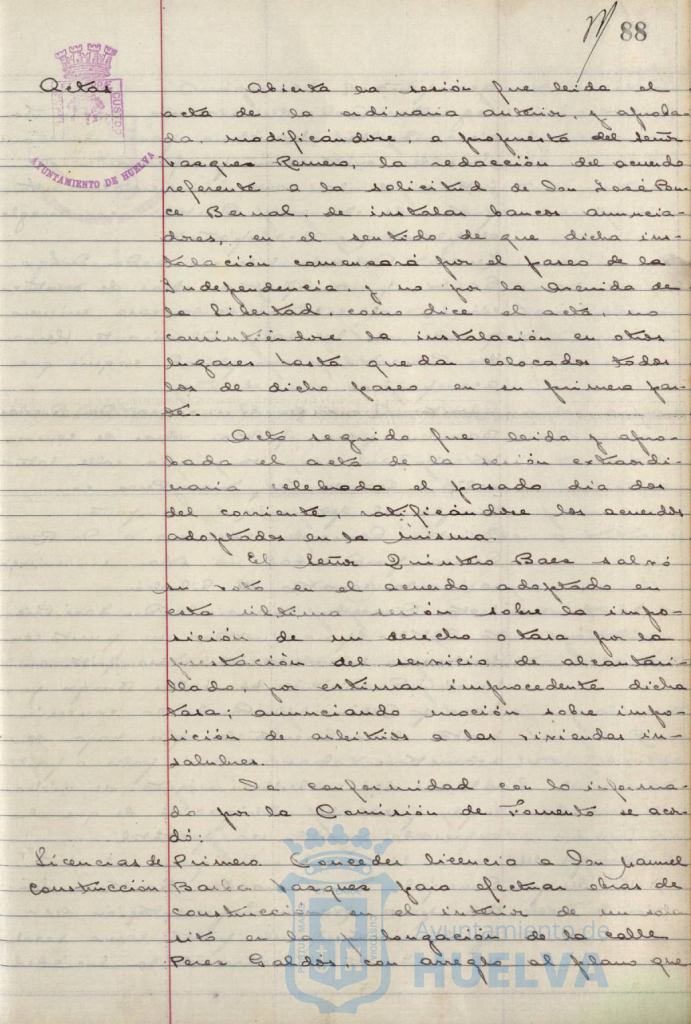 88
Actas
Abierta la sesión fue leída el
acta de la ordinaria anterior, y aproba-
da, modificándose, a propuesta del señor
Vazquez Romero, la redacción del acuerdo
referente a la solicitud de Don José Pon-
ce Bernal, de instalar bancos anuncia-
dores, en el sentido de que dicha ins-
talación comenzará por el paseo de la
Independencia, y no por la Avenida de
la Libertad, como dice el acta, no
consintiéndose la instalación en otros
lugares hasta quedar colocados todos
los de dicho paseo en su primera par-
te.
Acto seguido fue leida y apro-
bada el acta de la sesión extraordi-
naria celebrada el pasado dia dos
del corriente, ratificándose los acuerdos
adoptados en la misma.
El Señor Quintero Baez salvó
su voto en el acuerdo adoptado en
esta última sesión sobre la impo-
sición de un derecho o tasa por la
prestación del servicio de alcantari-
llado, por estimar improcedente dicha
tasa; anunciando moción sobre impo-
sición de arbitrios a las viviendas in-
salubres.
De conformidad con lo informa-
do por la Comisión de Fomento se acor-
dó:
Licencias de
construcción
Primero. Conceder licencia a Don Manuel
Barba Vazquez para efectuar obras de
construcción en el interior de un solar
sito en la prolongación de la calle
Perez Galdós, con arreglo al plano que
AYUNTAMIENTO DE HUELVA
Ayuntamiento de
HUELVA